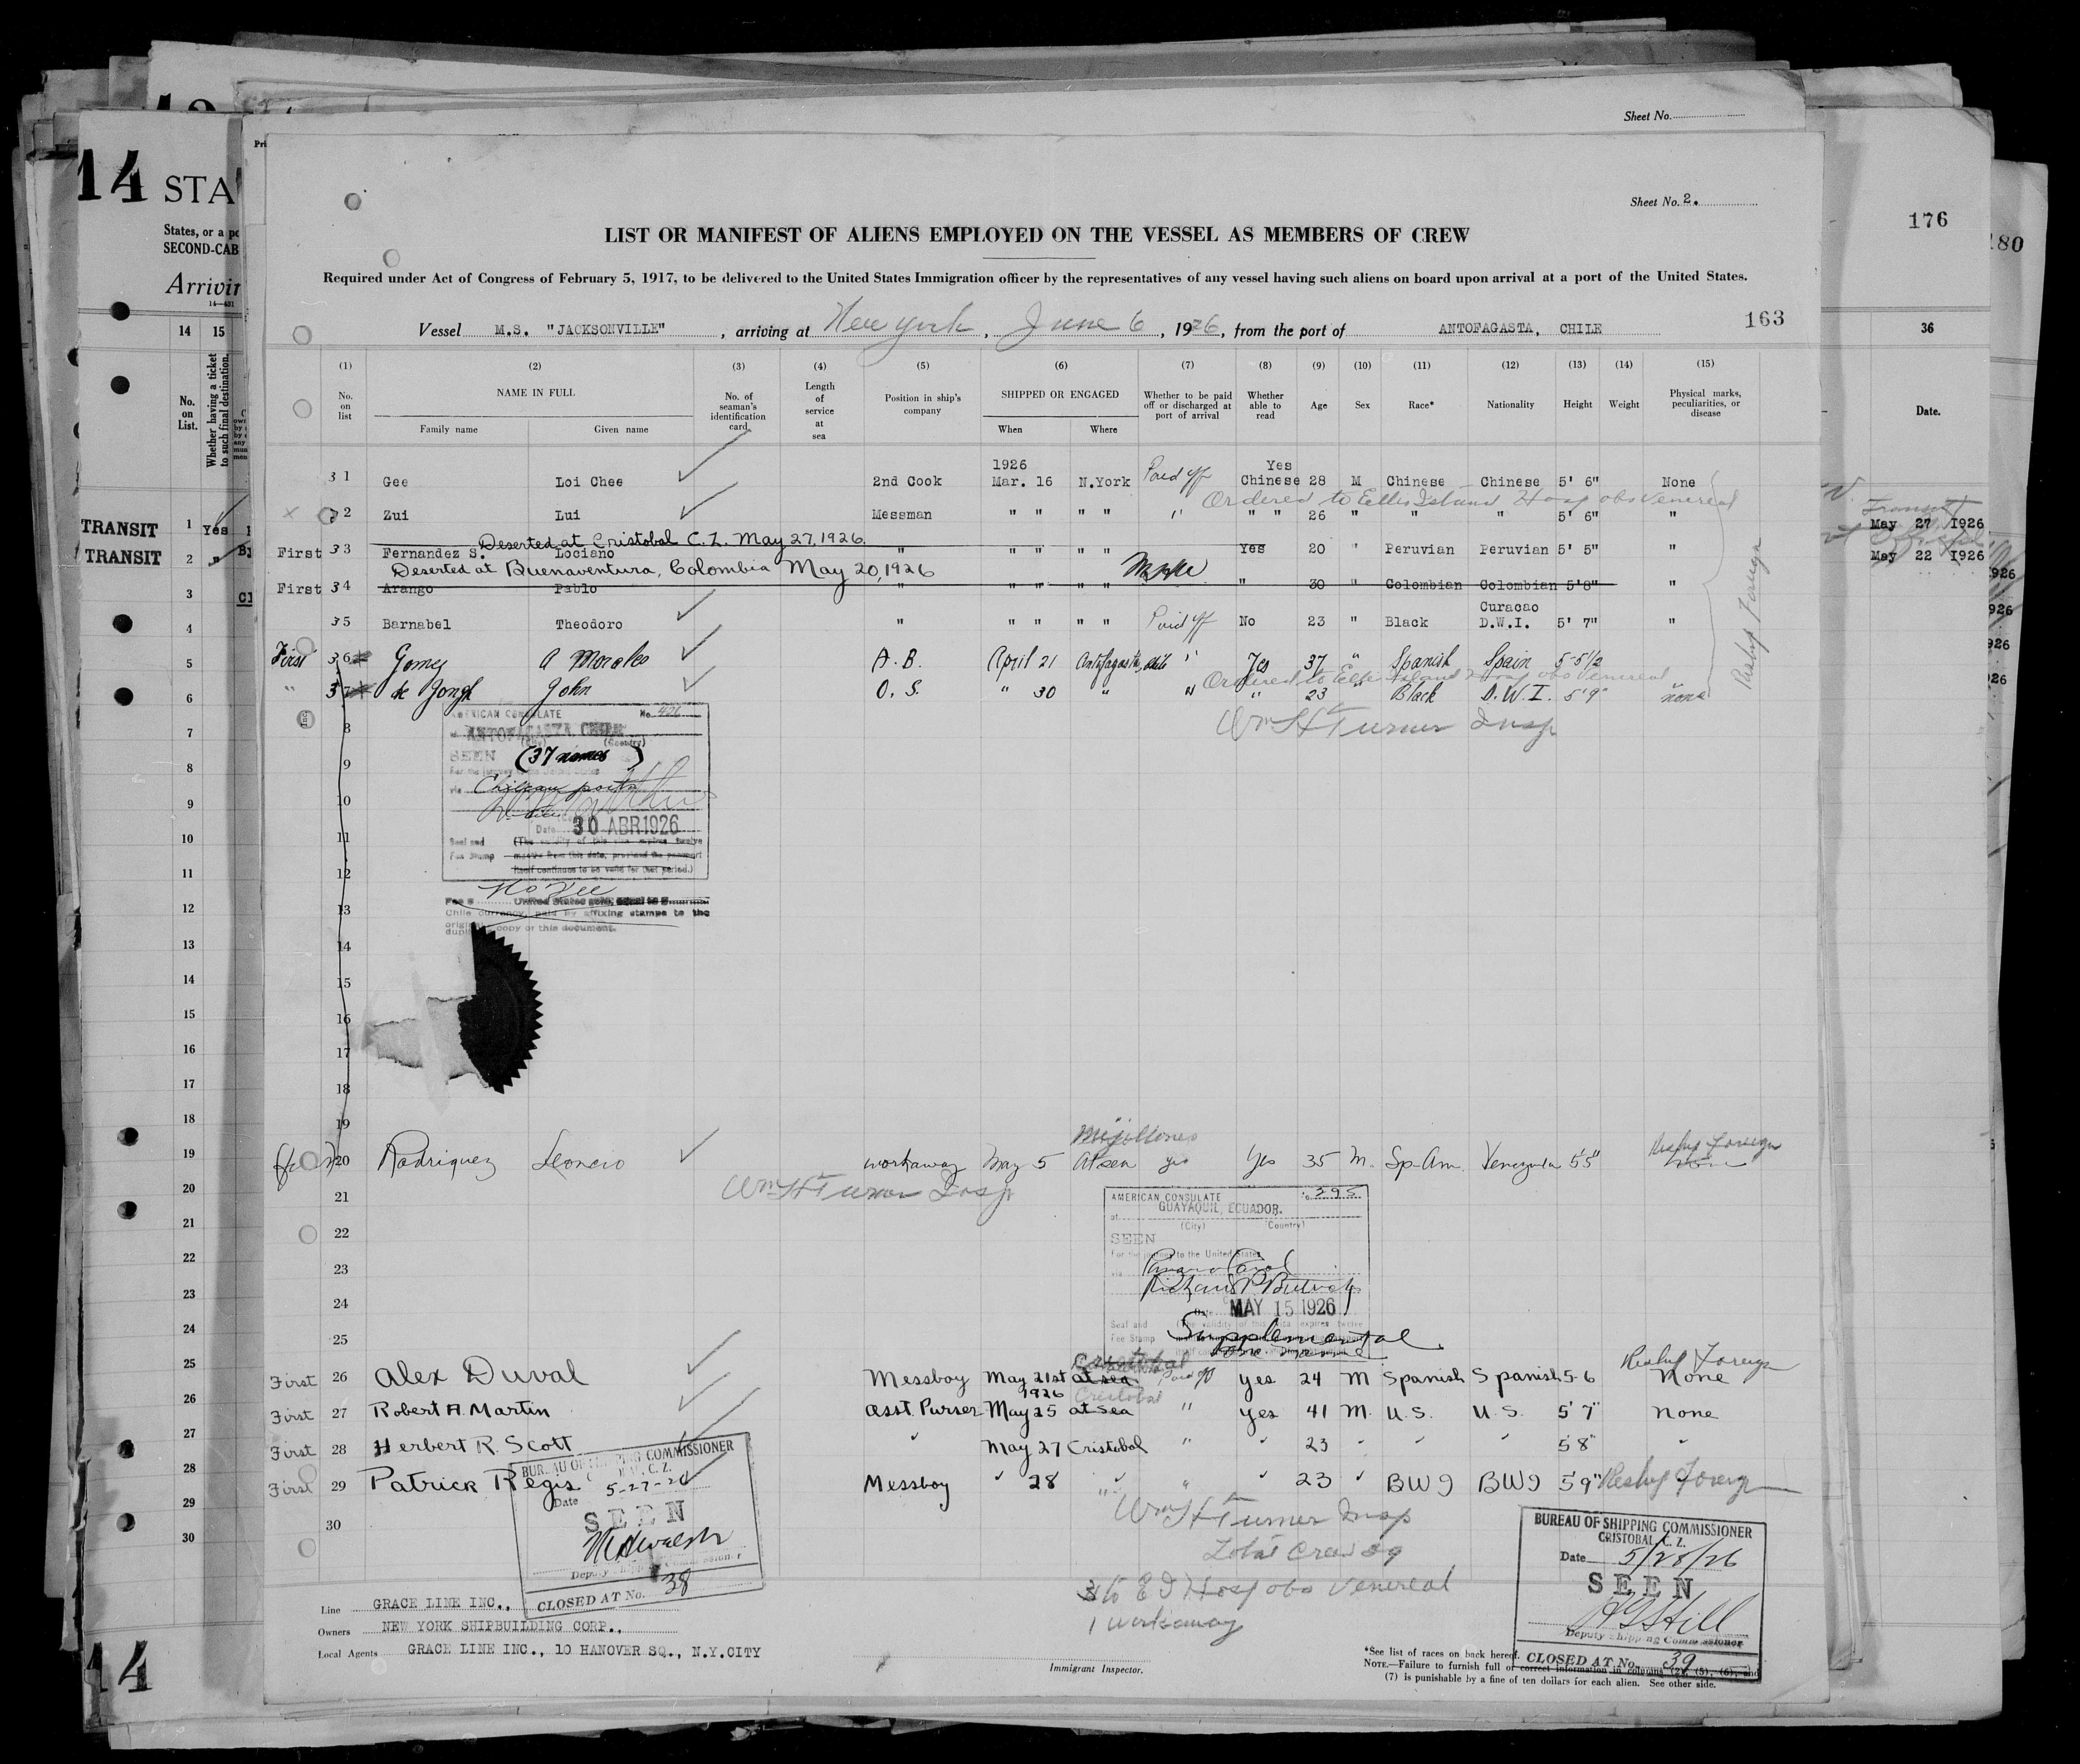 Sheet No.
14 STA
States, or a po
SECOND-CAB
Arrivin
176
180
Sheet No. 2.
LIST OR MANIFEST OF ALIENS EMPLOYED ON THE VESSEL AS MEMBERS OF CREW
Required under Act of Congress of February 5, 1917, to be delivered to the United States Immigration officer by the representatives of any vessel having such aliens on board upon arrival at a port of the United States.
Vessel M.S. "JACKSONVILLE", arriving at New York, June 6, 1926, from the port of ANTOFAGASTA, CHILE 163
(1) (2) (3) (4) (5) (6) (7) (8) (9) (10) (11) (12) (13) (14) (15)
No. on list NAME IN FULL Family name Given name No. of seaman's identification card Length of service at sea Position in ship's company SHIPPED OR ENGAGED When Where Whether to be paid off or discharged at port of arrival Whether able to read Age Sex Race* Nationality Height Weight Physical marks, peculiarities, or disease
14 15 No. on List. Whether having a ticket to such final destination.
36 Date.
31 Gee Loi Chee 2nd Cook 1926 Mar. 16 N.York Paid off Yes Chinese 28 M Chinese Chinese 5' 6" None
Ordered to Ellis Island Hosp obs Venereal
x 32 Zui Lui Messman " " " " " " " 26 " " " 5' 6" "
Deserted at Cristobal C.Z. May 27, 1926.
First 33 Fernandez S. Lociano " " " " " Yes 20 " Peruvian Peruvian 5' 5" "
Deserted at Buenaventura, Colombia May 20, 1926
First 34 Arango Pablo " " " " " " 30 " Colombian Colombian 5'8" "
35 Barnabel Theodoro " " " " " Paid off No 23 " Black Curacao D.W.I. 5' 7" "
First 36 Gomez A Morales A.B. April 21 Antofagasta, Chile " Yes 37 " Spanish Spain 5-5 1/2 "
Ordered to Ellis Island Hosp obs Venereal
" 37 de Jongh John O.S. " 30 " " " 23 " Black D.W.I. 5'9" none
Reship Foreign
Wm H Turner Insp
TRANSIT 1 Yes
TRANSIT 2 "
Transit
May 27 1926
May 22 1926
AMERICAN CONSULATE No. 426
ANTOFAGASTA CHILE
(City) (Country)
SEEN (37 names)
For the journey to the United States
via Chilean ports
Date 30 ABR 1926
Seal and Fee Stamp (The validity of this visa expires twelve months from this date, provided the passport itself continues to be valid for that period.)
No Fee
Fee $ United States gold, equal to $
Chile currency, paid by affixing stamps to the
original copy of this document.
duplicate
8
9
10
11
12
13
14
15
16
17
18
19
Mejillones
20 Rodriguez Leoncio workaway May 5 At sea yes Yes 35 M. Sp-Am. Venezuela 5'5" none
Reship Foreign
21 Wm H Turner Insp
22
23
24
25
AMERICAN CONSULATE No. 395
at GUAYAQUIL, ECUADOR.
(City) (Country)
SEEN
For the journey to the United States
via Panama Canal
Date MAY 15 1926
Seal and Fee Stamp (The validity of this visa expires twelve
Supplemental
Cristobal
Reship Foreign
First 26 Alex Duval Messboy May 21st 1926 at sea Paid off yes 24 M Spanish Spanish 5-6 None
Cristobal
First 27 Robert A. Martin Asst. Purser May 25 at sea " yes 41 M. U.S. U.S. 5'7" None
First 28 Herbert R. Scott " May 27 Cristobal " " 23 " " " 5'8" "
First 29 Patrick Regis Messboy " 28 " " " 23 " BWI BWI 5'9" Reship Foreign
30
Wm H Turner Insp
Total Crew 39
3 to E I Hosp obs Venereal
1 workaway
BUREAU OF SHIPPING COMMISSIONER
CRISTOBAL, C.Z.
Date 5-27-26
SEEN
Deputy Shipping Commissioner
CLOSED AT No. 38
BUREAU OF SHIPPING COMMISSIONER
CRISTOBAL, C.Z.
Date 5/28/26
SEEN
Deputy Shipping Commissioner
CLOSED AT No. 39
Line GRACE LINE INC.,
Owners NEW YORK SHIPBUILDING CORP.,
Local Agents GRACE LINE INC., 10 HANOVER SQ., N.Y.CITY
Immigrant Inspector.
*See list of races on back hereof.
NOTE.—Failure to furnish full or correct information in columns (2), (5), (6), and
(7) is punishable by a fine of ten dollars for each alien. See other side.
14